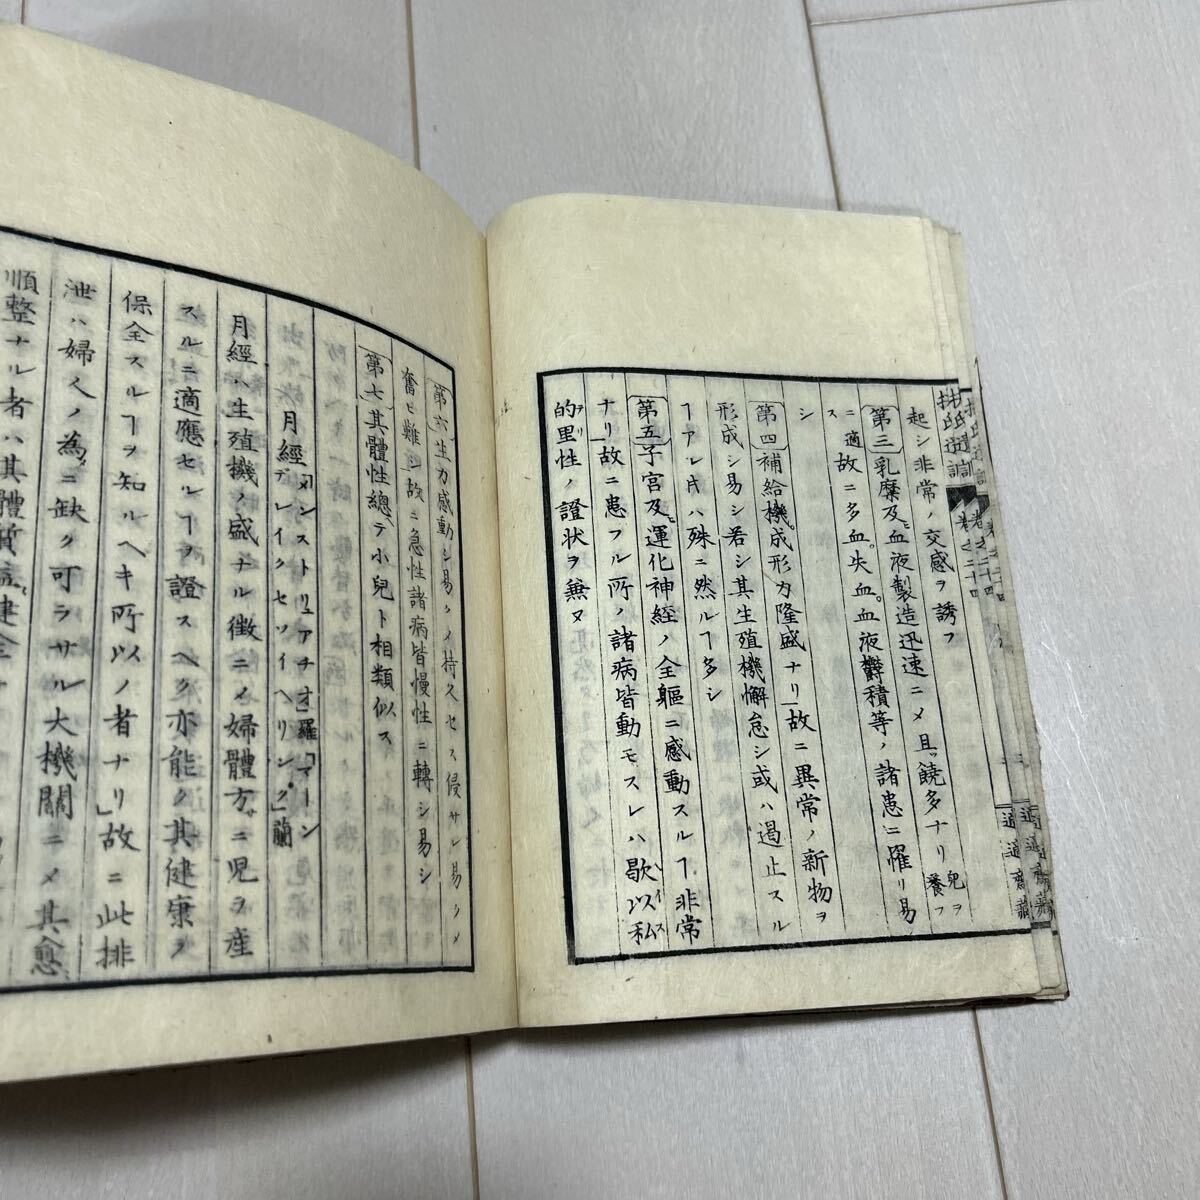 起シ非常ノ交感ヲ誘フ
第三乳糜及ヒ血液製造迅速ニメ且饒多ナリ兒ヲ養フ
ニ適ス故ニ多血。失血。血液欝積等ノ諸患ニ罹リ易
シ
第四補給機。成形力隆盛ナリ」故ニ異常ノ新物ヲ
形成シ易シ若シ其生殖機懈怠シ或ハ遏止スル
ヿアレ片ハ殊ニ然ルヿ多シ
第五子宮及ヒ運化神經ノ全軀ニ感動スルヿ非常
ナリ」故ニ患フル所ノ諸病皆動モスレハ歇以私
的里性ノ證状ヲ兼ヌ
第六生力感動シ易クメ持久セス侵サレ易クメ
奮ヒ難シ」故ニ急性諸病皆慢性ニ轉シ易シ
第七其體性總テ小兒ト相類似ス
月經
月經ハ生殖機ノ盛ナル徴ニメ婦體方ニ児ヲ産
スルニ適應セルヿヲ證スヘク亦能ク其健康ヲ
保全スルヿヲ知ルヘキ所以ノ者ナリ」故ニ此排
泄ハ婦人ノ為ニ缺ク可ラサル大機關ニメ其愈
順整ナル者ハ其體質